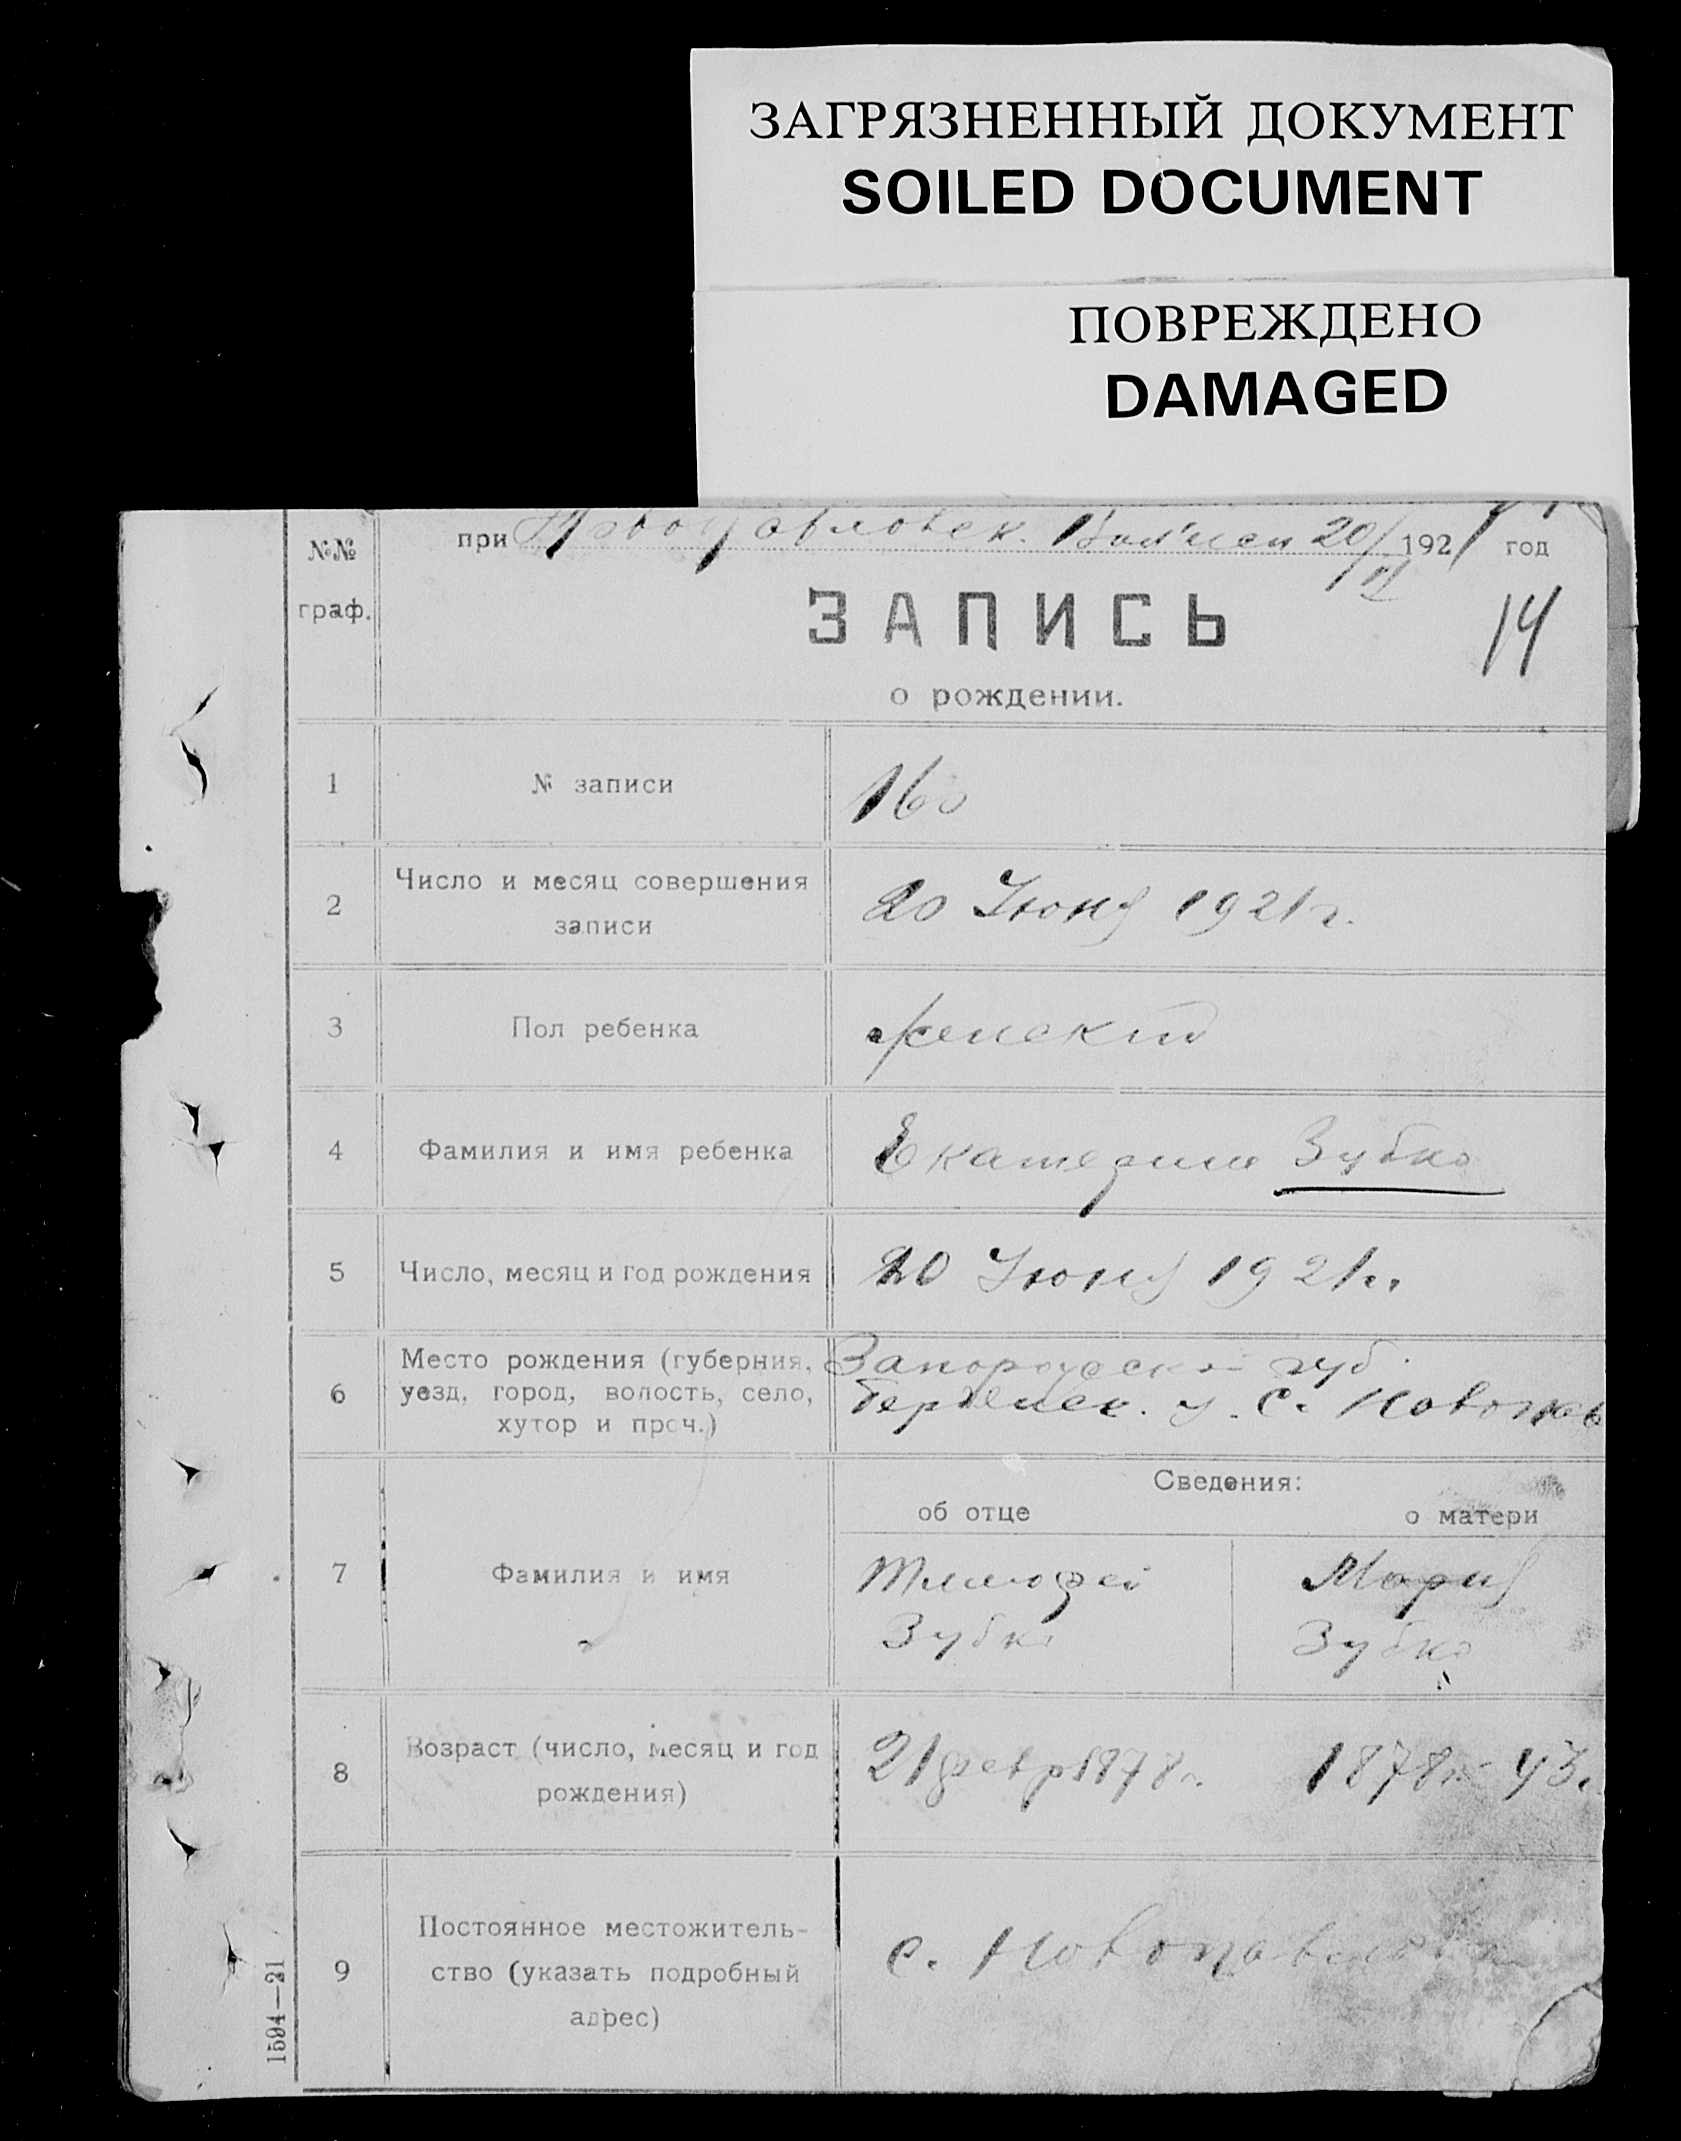 ЗАГРЯЗНЕННЫЙ ДОКУМЕНТ
SOILED DOCUMENT
ПОВРЕЖДЕНО
DAMAGED
№№ граф.
при Новопавловск. 20/VI 1921 год
ЗАПИСЬ
14
о рождении.
1 № записи 160
2 Число и месяц совершения записи 20 Июня 1921 г.
3 Пол ребенка женский
4 Фамилия и имя ребенка Екатерина Зубко
5 Число, месяц и год рождения 20 Июня 1921 г.
6 Место рождения (губерния, уезд, город, волость, село, хутор и проч.) губ.
Бердянск. у. с. Новопав
Сведения:
об отце
о матери
7 Фамилия и имя
Тимофей
Зубко
Мария
Зубко
8 Возраст (число, месяц и год рождения) 21 февр 1878 г. 1878 г. 43
9 Постоянное местожительство (указать подробный адрес) с. Новопавловка
1594—21